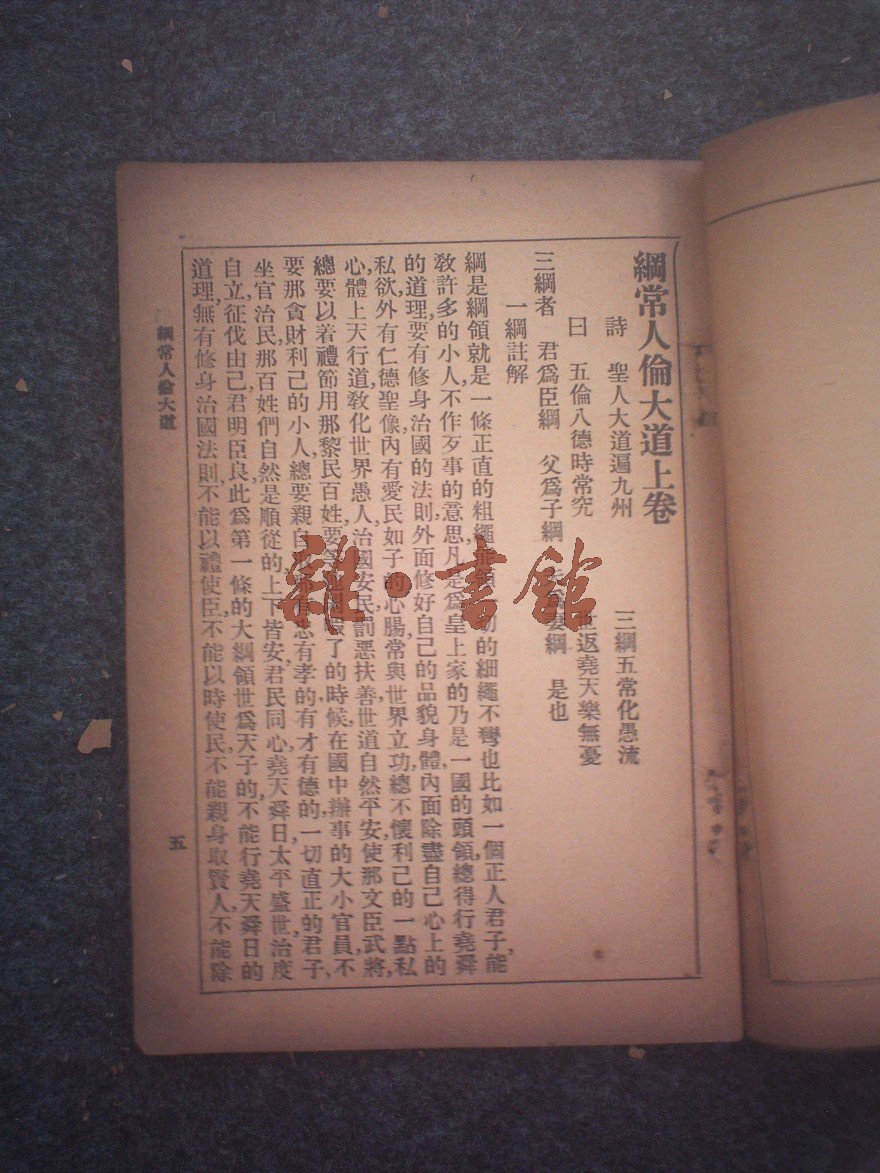 綱常人倫大道上卷
詩　聖人大道遍九州　三綱五常化愚流
曰　五倫八德時常究　世返堯天樂無憂
三綱者　君爲臣綱　父爲子綱　夫爲妻綱　是也
一綱註解
綱是綱領,就是一條正直的粗繩,能領　切的細繩不彎也比如一個正人君子,能
教許多的小人不作歹事的意思,凡是爲皇上家的,乃是一國的頭領,總得行堯舜
的道理,要有修身治國的法則,外面修好自己的品貌身體,內面除盡自己心上的
私欲,外有仁德聖像,內有愛民如子的心腸,常與世界立功,總不懷利己的一點私
心,體上天行道,教化世界愚人,治國安民,罰惡扶善,世道自然平安,使那文臣武將,
總要以着禮節用那黎民百姓,要等　了的時候,在國中辦事的大小官員,不
要那貪財利己的小人,總要親自　忠有孝的,有才有德的,一切直正的君子,
坐官治民,那百姓們自然是順從的,上下皆安,君民同心,堯天舜日,太平盛世,治度
自立,征伐由己,君明臣良,此爲第一條的大綱領,世爲天子的,不能行堯天舜日的
道理,無有修身治國法則,不能以禮使臣,不能以時使民,不能親身取賢人,不能除
綱常人倫大道
五
雜·書館